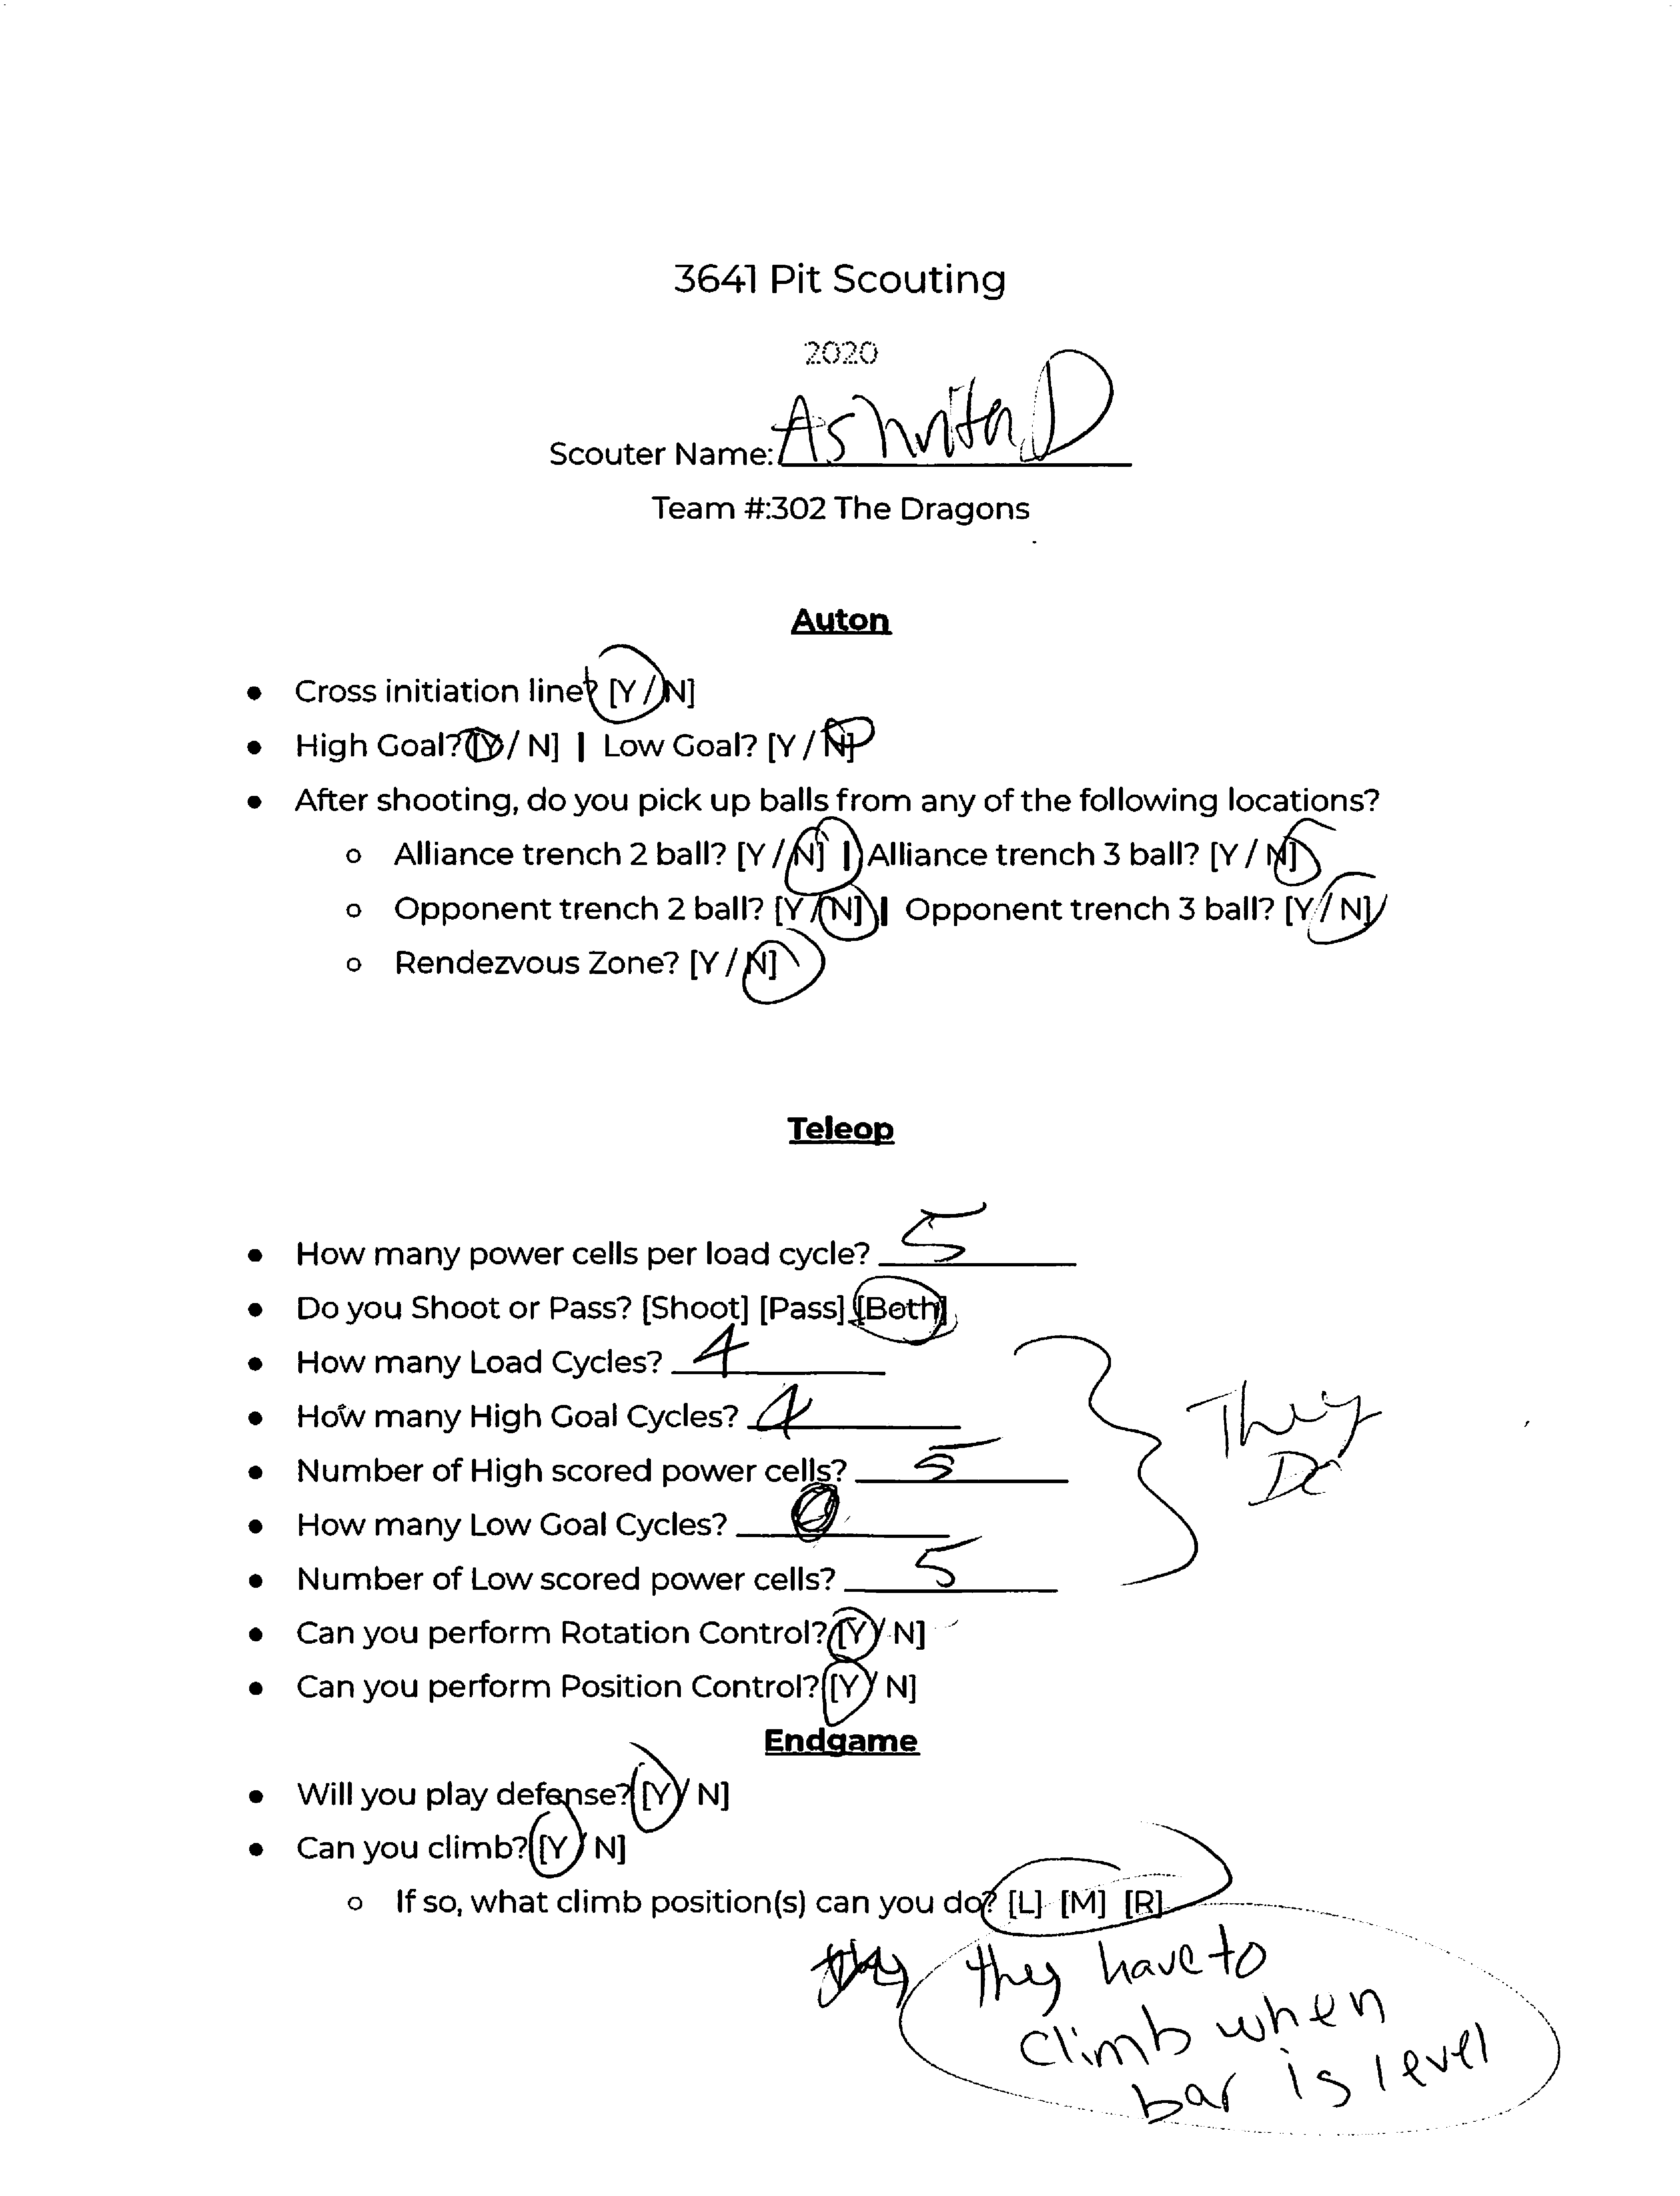 3641 Pit Scouting
2020
Scouter Name: Ashrita D
Team #:302 The Dragons
Auton
Cross initiation line? [Y / N]
High Goal? [Y / N] | Low Goal? [Y / N]
After shooting, do you pick up balls from any of the following locations?
Alliance trench 2 ball? [Y / N] | Alliance trench 3 ball? [Y / N]
Opponent trench 2 ball? [Y / N] | Opponent trench 3 ball? [Y / N]
Rendezvous Zone? [Y / N]
Teleop
How many power cells per load cycle? 5
Do you Shoot or Pass? [Shoot] [Pass] [Both]
How many Load Cycles? 4
How many High Goal Cycles? 4
They
Number of High scored power cells? 5
How many Low Goal Cycles?
Number of Low scored power cells? 5
Can you perform Rotation Control? [Y / N]
Can you perform Position Control? [Y / N]
Endgame
Will you play defense? [Y / N]
Can you climb? [Y / N]
If so, what climb position(s) can you do? [L] [M] [R]
they have to
climb when
bar is level